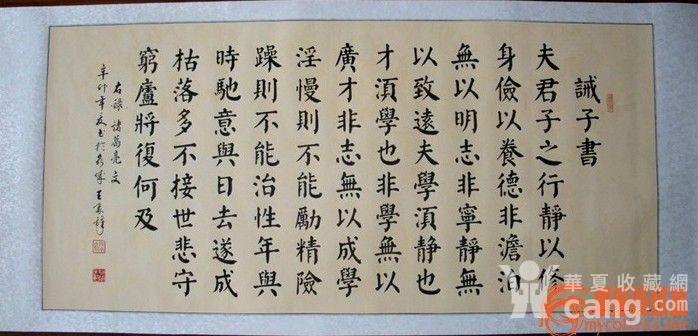 誡子書
夫君子之行靜以修
身儉以養德非澹泊
無以明志非寧靜無
以致遠夫學湏静也
才湏學也非學無以
廣才非志無以成學
淫慢則不能勵精險
躁則不能治性年與
時馳意與日去遂成
枯落多不接世悲守
窮廬將復何及
右録諸葛亮文
辛卯年夏書於
華夏收藏網
cang.com